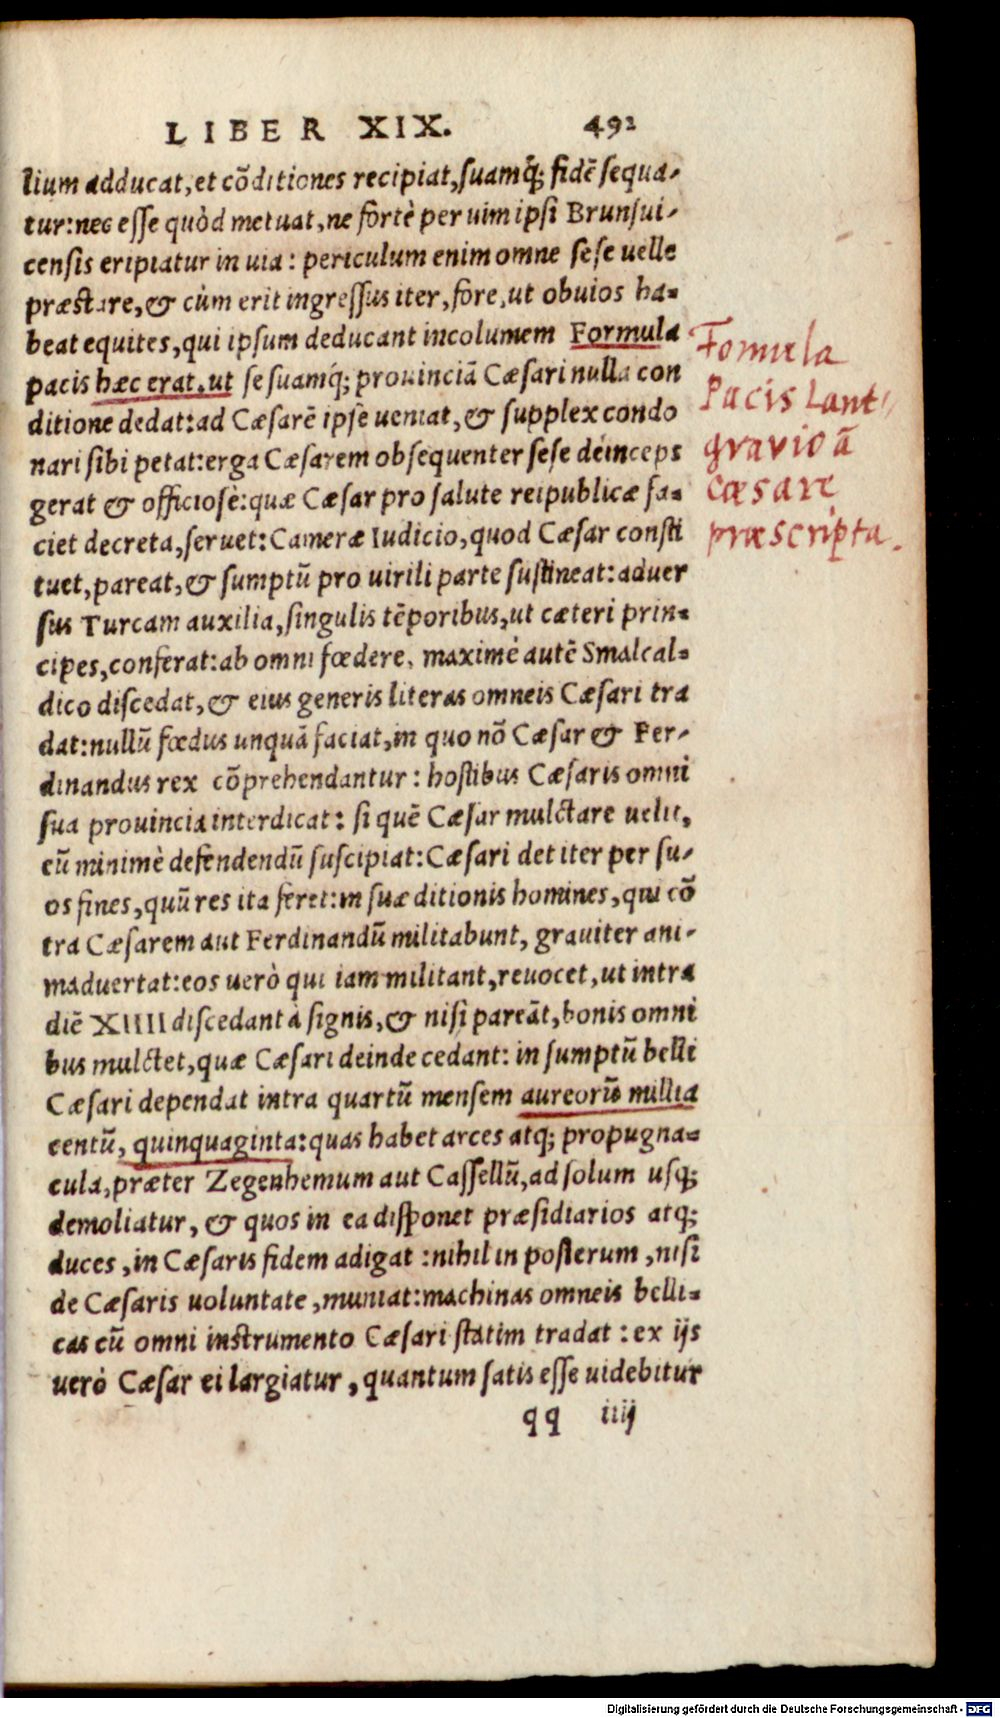 LIBER XIX. 492
lium adducat, et cõditiones recipiat, suamq́; fidẽ sequa-
tur: nec esse quòd metuat, ne fortè per uim ipsi Brunsui-
censis eripiatur in uia: periculum enim omne sese uelle
præstare, & cùm erit ingressus iter, fore, ut obuios ha-
beat equites, qui ipsum deducant incolumem Formula
pacis hæc erat, ut se suamq́; prouinciã Cæsari nulla con
ditione dedat: ad Cæsarẽ ipse ueniat, & supplex condo
nari sibi petat: erga Cæsarem obsequenter sese deinceps
gerat & officiosè: quæ Cæsar pro salute reipublicæ fa-
ciet decreta, seruet: Cameræ Iudicio, quod Cæsar consti
tuet, pareat, & sumptũ pro uirili parte sustineat: aduer
sus Turcam auxilia, singulis tẽporibus, ut cæteri prin-
cipes, conferat: ab omni fœdere, maximè autẽ Smalcal-
dico discedat, & eius generis literas omneis Cæsari tra
dat: nullũ fœdus unquã faciat, in quo nõ Cæsar & Fer-
dinandus rex cõprehendantur: hostibus Cæsaris omni
sua prouincia interdicat: si quẽ Cæsar mulctare uelit,
eũ minimè defendendũ suscipiat: Cæsari det iter per su-
os fines, quũ res ita feret: in suæ ditionis homines, qui cõ
tra Cæsarem aut Ferdinandũ militabunt, grauiter ani-
maduertat: eos uerò qui iam militant, reuocet, ut intra
diẽ XIIII discedant à signis, & nisi pareãt, bonis omni
bus mulctet, quæ Cæsari deinde cedant: in sumptũ belli
Cæsari dependat intra quartũ mensem aureorũ millia
centũ, quinquaginta: quas habet arces atq; propugna-
cula, præter Zegenhemum aut Cassellũ, ad solum usq;
demoliatur, & quos in ea disponet præsidiarios atq;
duces, in Cæsaris fidem adigat: nihil in posterum, nisi
de Cæsaris uoluntate, muniat: machinas omneis belli-
cas cũ omni instrumento Cæsari statim tradat: ex ijs
uerò Cæsar ei largiatur, quantum satis esse uidebitur
qq iiij
Formula
Pacis Lant
gravio ã
Cæsare
præscripta.
Digitalisierung gefördert durch die Deutsche Forschungsgemeinschaft - DFG